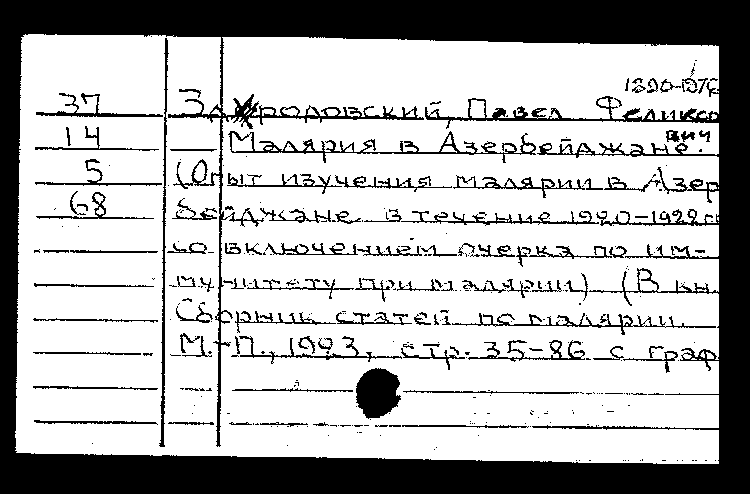 1890-1976
37 Здродовский, Павел Феликсо
вич
14 Малярия в Азербейджане.
5 (Опыт изучения малярии в Азер
68 бейджане в течение 1920-1922 гг
со включением очерка по им-
мунитету при малярии) (В кн.
Сборник статей по малярии.
М.-П., 1923, стр. 35-86 с граф